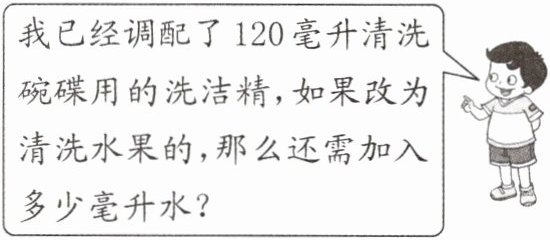 我已经调配了120毫升清洗
碗碟用的洗洁精,如果改为
清洗水果的,那么还需加入
多少毫升水?